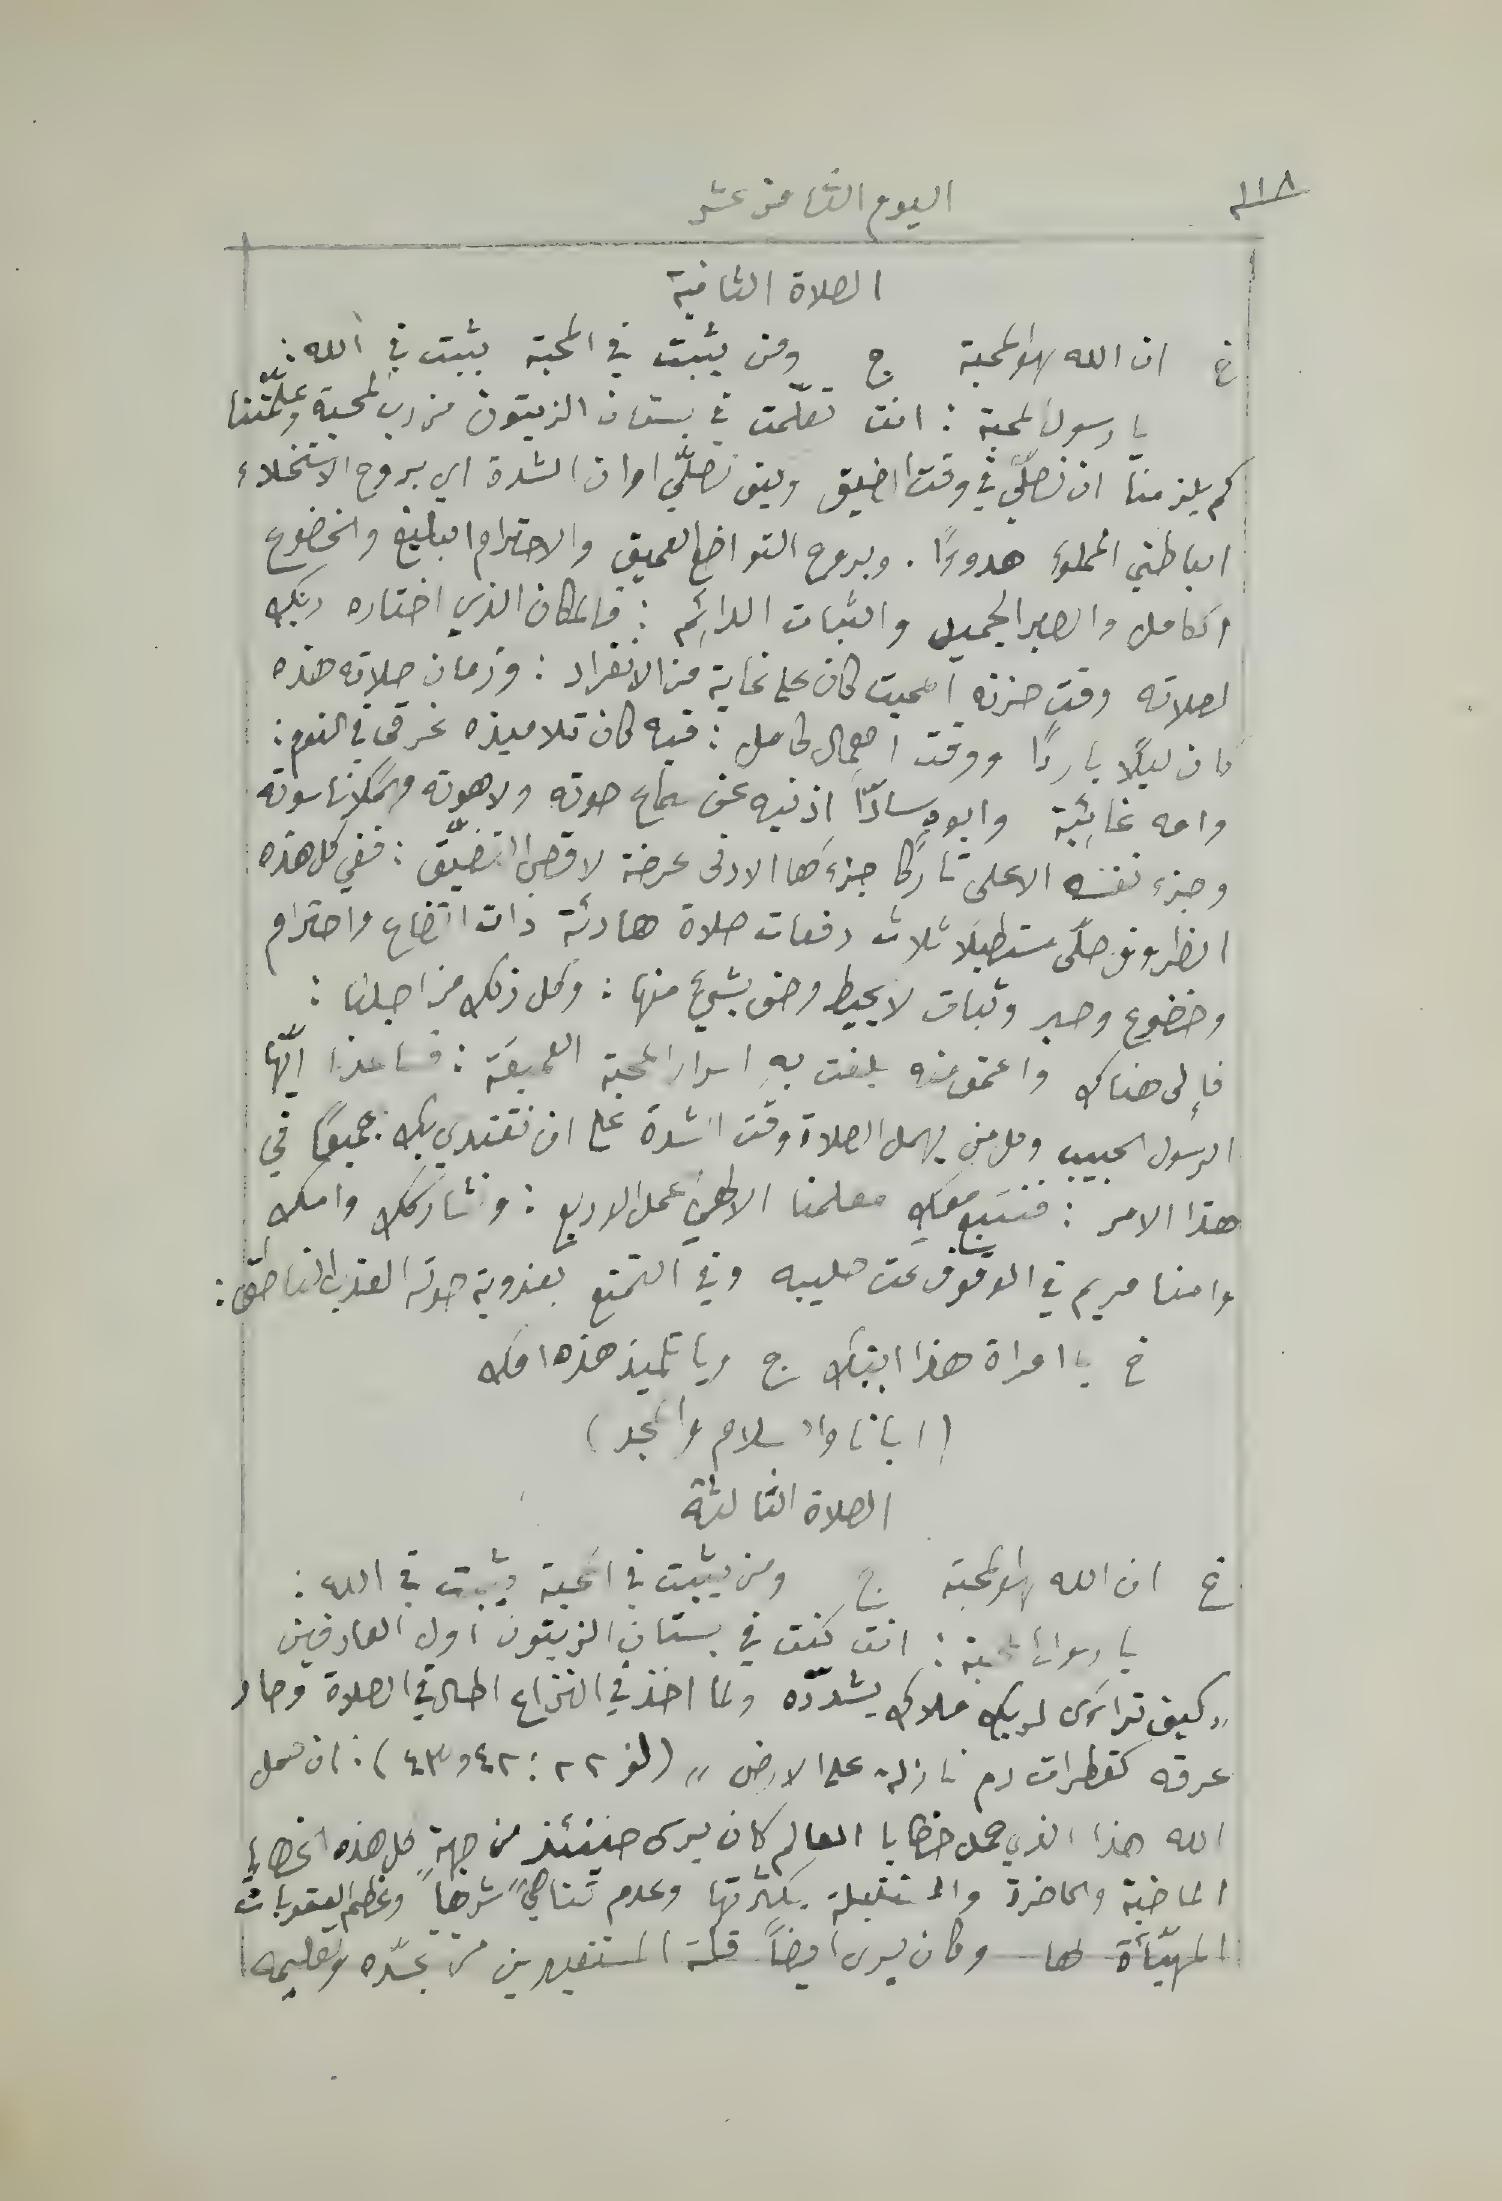 ١١٨
اليوم الثامن عشر
الصلاة الثانية
خ ان الله هو المحبة ج ومن يثبت في المحبة يثبت في الله :
يا رسول المحبة : انت تعلّمت في بستان الزيتون من رب المحبة وعلّمتنا
كم يلزمنا ان نصلّي في وقت الضيق وكيف نصلّي اوان الشدة اي بروح الاستخلاء
الباطني المملوء هدوءًا . وبروح التواضع العميق والاحترام البليغ والخضوع
الكامل والصبر الجميل والثبات الدائم : فالمكان الذي اختاره ربك
لصلاته وقت حزنه المميت كان على غاية من الانفراد : وزمان صلاته هذه
كان ليلًا باردًا ووقت اهمال كامل : فيه كان تلاميذه غرقى في النوم :
وامه غائبة وابوه سادًّا اذنيه عن سماع صوته ولاهوته مهملًا ناسوته
وجزء نفسه الاعلى تاركًا جزءها الادنى عرضة لاقصى التضيّق : ففي كل هذه
الظروف صلّى مستطيلًا ثلاث دفعات صلاة هادئة ذات اتضاع واحترام
وخضوع وصبر وثبات لا يحيط وصف بشيء منها : وكل ذلك من اجلنا :
فإلى هناك واعمق منه بلغت به اسرار المحبة العميقة : فساعدنا ايّها
الرسول الحبيب وكل من يهمل الصلاة وقت الشدة على ان نقتدي بك جميعًا في
هذا الامر : فنتبع معك معلمنا الالهي عمل الوديع : ونشاركك وامك
وامنا مريم في الوقوف تحت صليبه وفي التمتع بعذوبة صوته العذب الناطق :
خ يا امراة هذا ابنك ج ويا تلميذ هذه امك
(ابانا والسلام والمجد)
الصلاة الثالثة
خ ان الله هو المحبة ج ومن يثبت في المحبة يثبت في الله :
يا رسول المحبة : انت كنت في بستان الزيتون اول العارفين
„ كيف تراءى لربك ملاك يشدّده ولما اخذ في النزاع اطال في الصلاة وصار
عرقه كقطرات دم نازلة على الارض „ (لو ٢٢ : ٤٢ و ٤٣) : ان حمل
الله هذا الذي حمل خطايا العالم كان يرى حينئذ من جهةٍ كل هذه الخطايا
الماضية والحاضرة والمستقبلة بكثرتها وعدم تناهي شرها وعظم العقوبات
المهيّأة لها وكان يرى ايضًا قلة المستفيدين من تجسّده وتعليمه